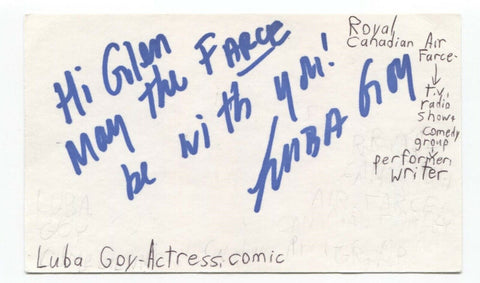 Hi Glen
May the FARCE
be with you!
LUBA GOY
Royal
Canadian Air
Farce-
t.v.
radio
show+
comedy
group
performer
writer
LUBA
GOY
AIR FARCE
Luba Goy-Actress, comic